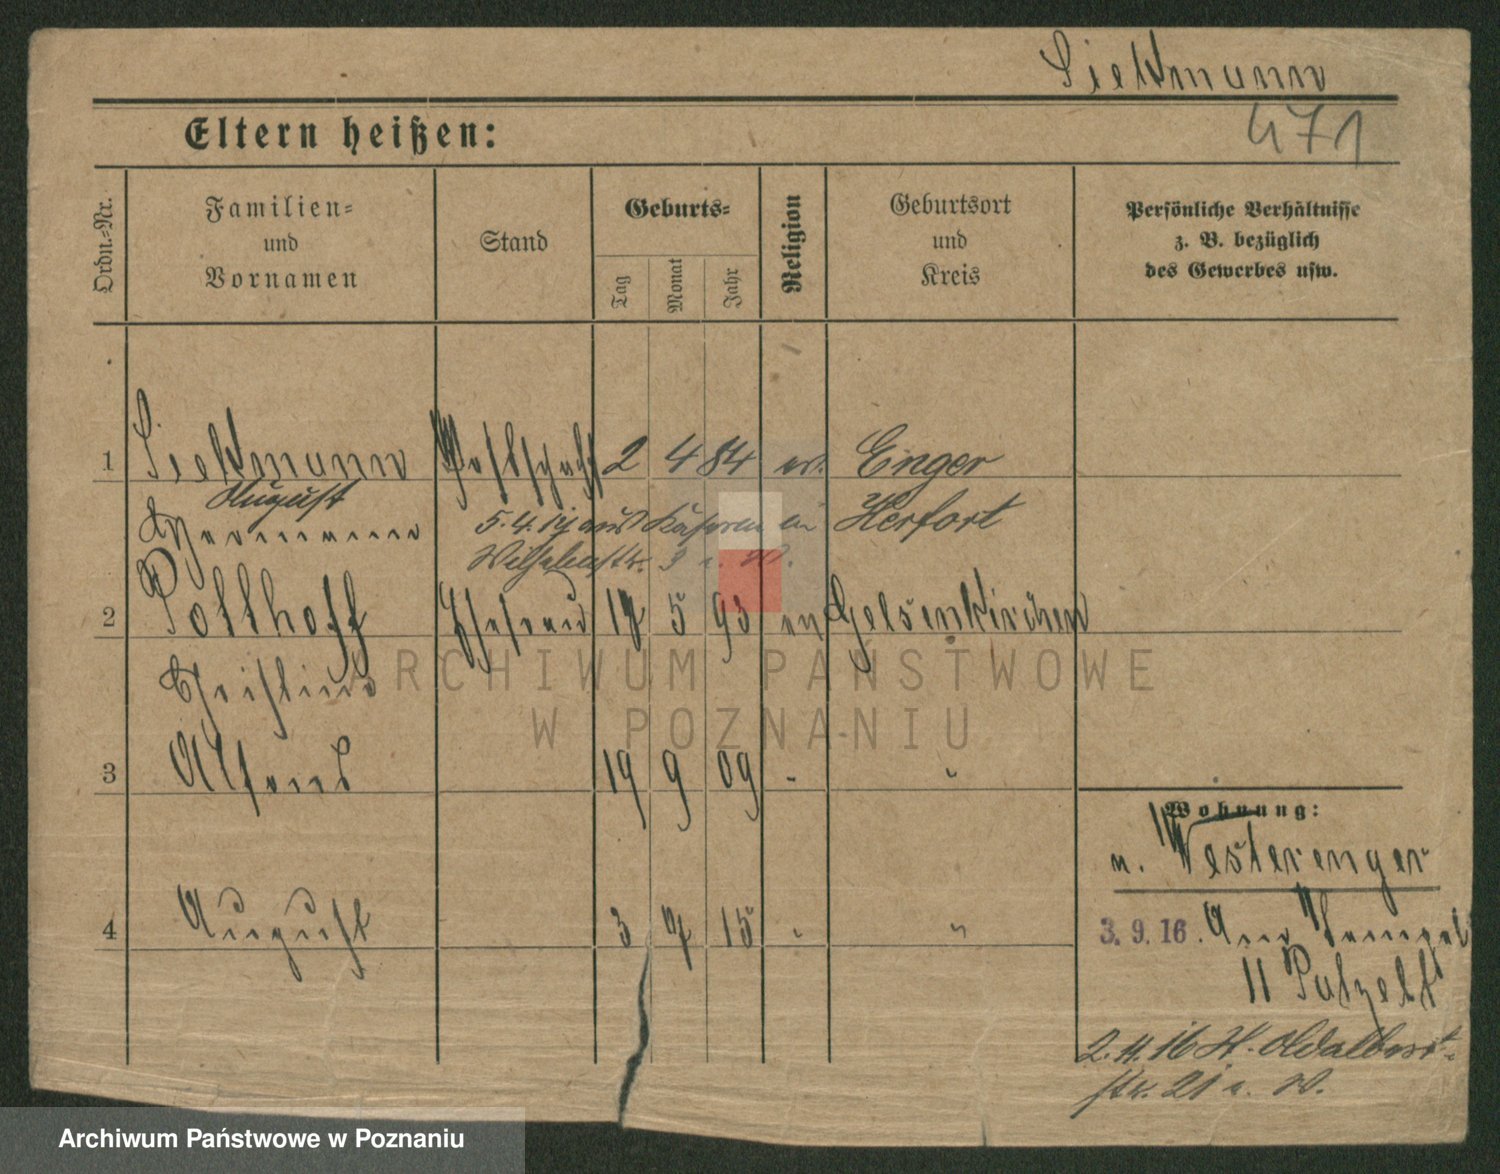 Siekmann
471
Eltern heißen:
Ordn.-Nr.
Familien-
und
Vornamen
Stand
Geburts-
Tag
Monat
Jahr
Religion
Geburtsort
und
Kreis
Persönliche Verhältnisse
z. B. bezüglich
des Gewerbes usw.
1 Siekmann 2 4 84 ev. Enger
August Herfort
Hermann 5.4.
Wilhelmstr. 3
2 Potthoff Ehefrau 17 5 93 Gelsenkirchen
Christine
3 Alfons 19 9 09 " "
4 August 3 7 15 " "
Wohnung:
n. Westerenger
3. 9. 16. Am Tempel
11 Patzelt
2. 11. 16 W. Adalbert-
str. 21 a. W.
ARCHIWUM PAŃSTWOWE
W POZNANIU
Archiwum Państwowe w Poznaniu